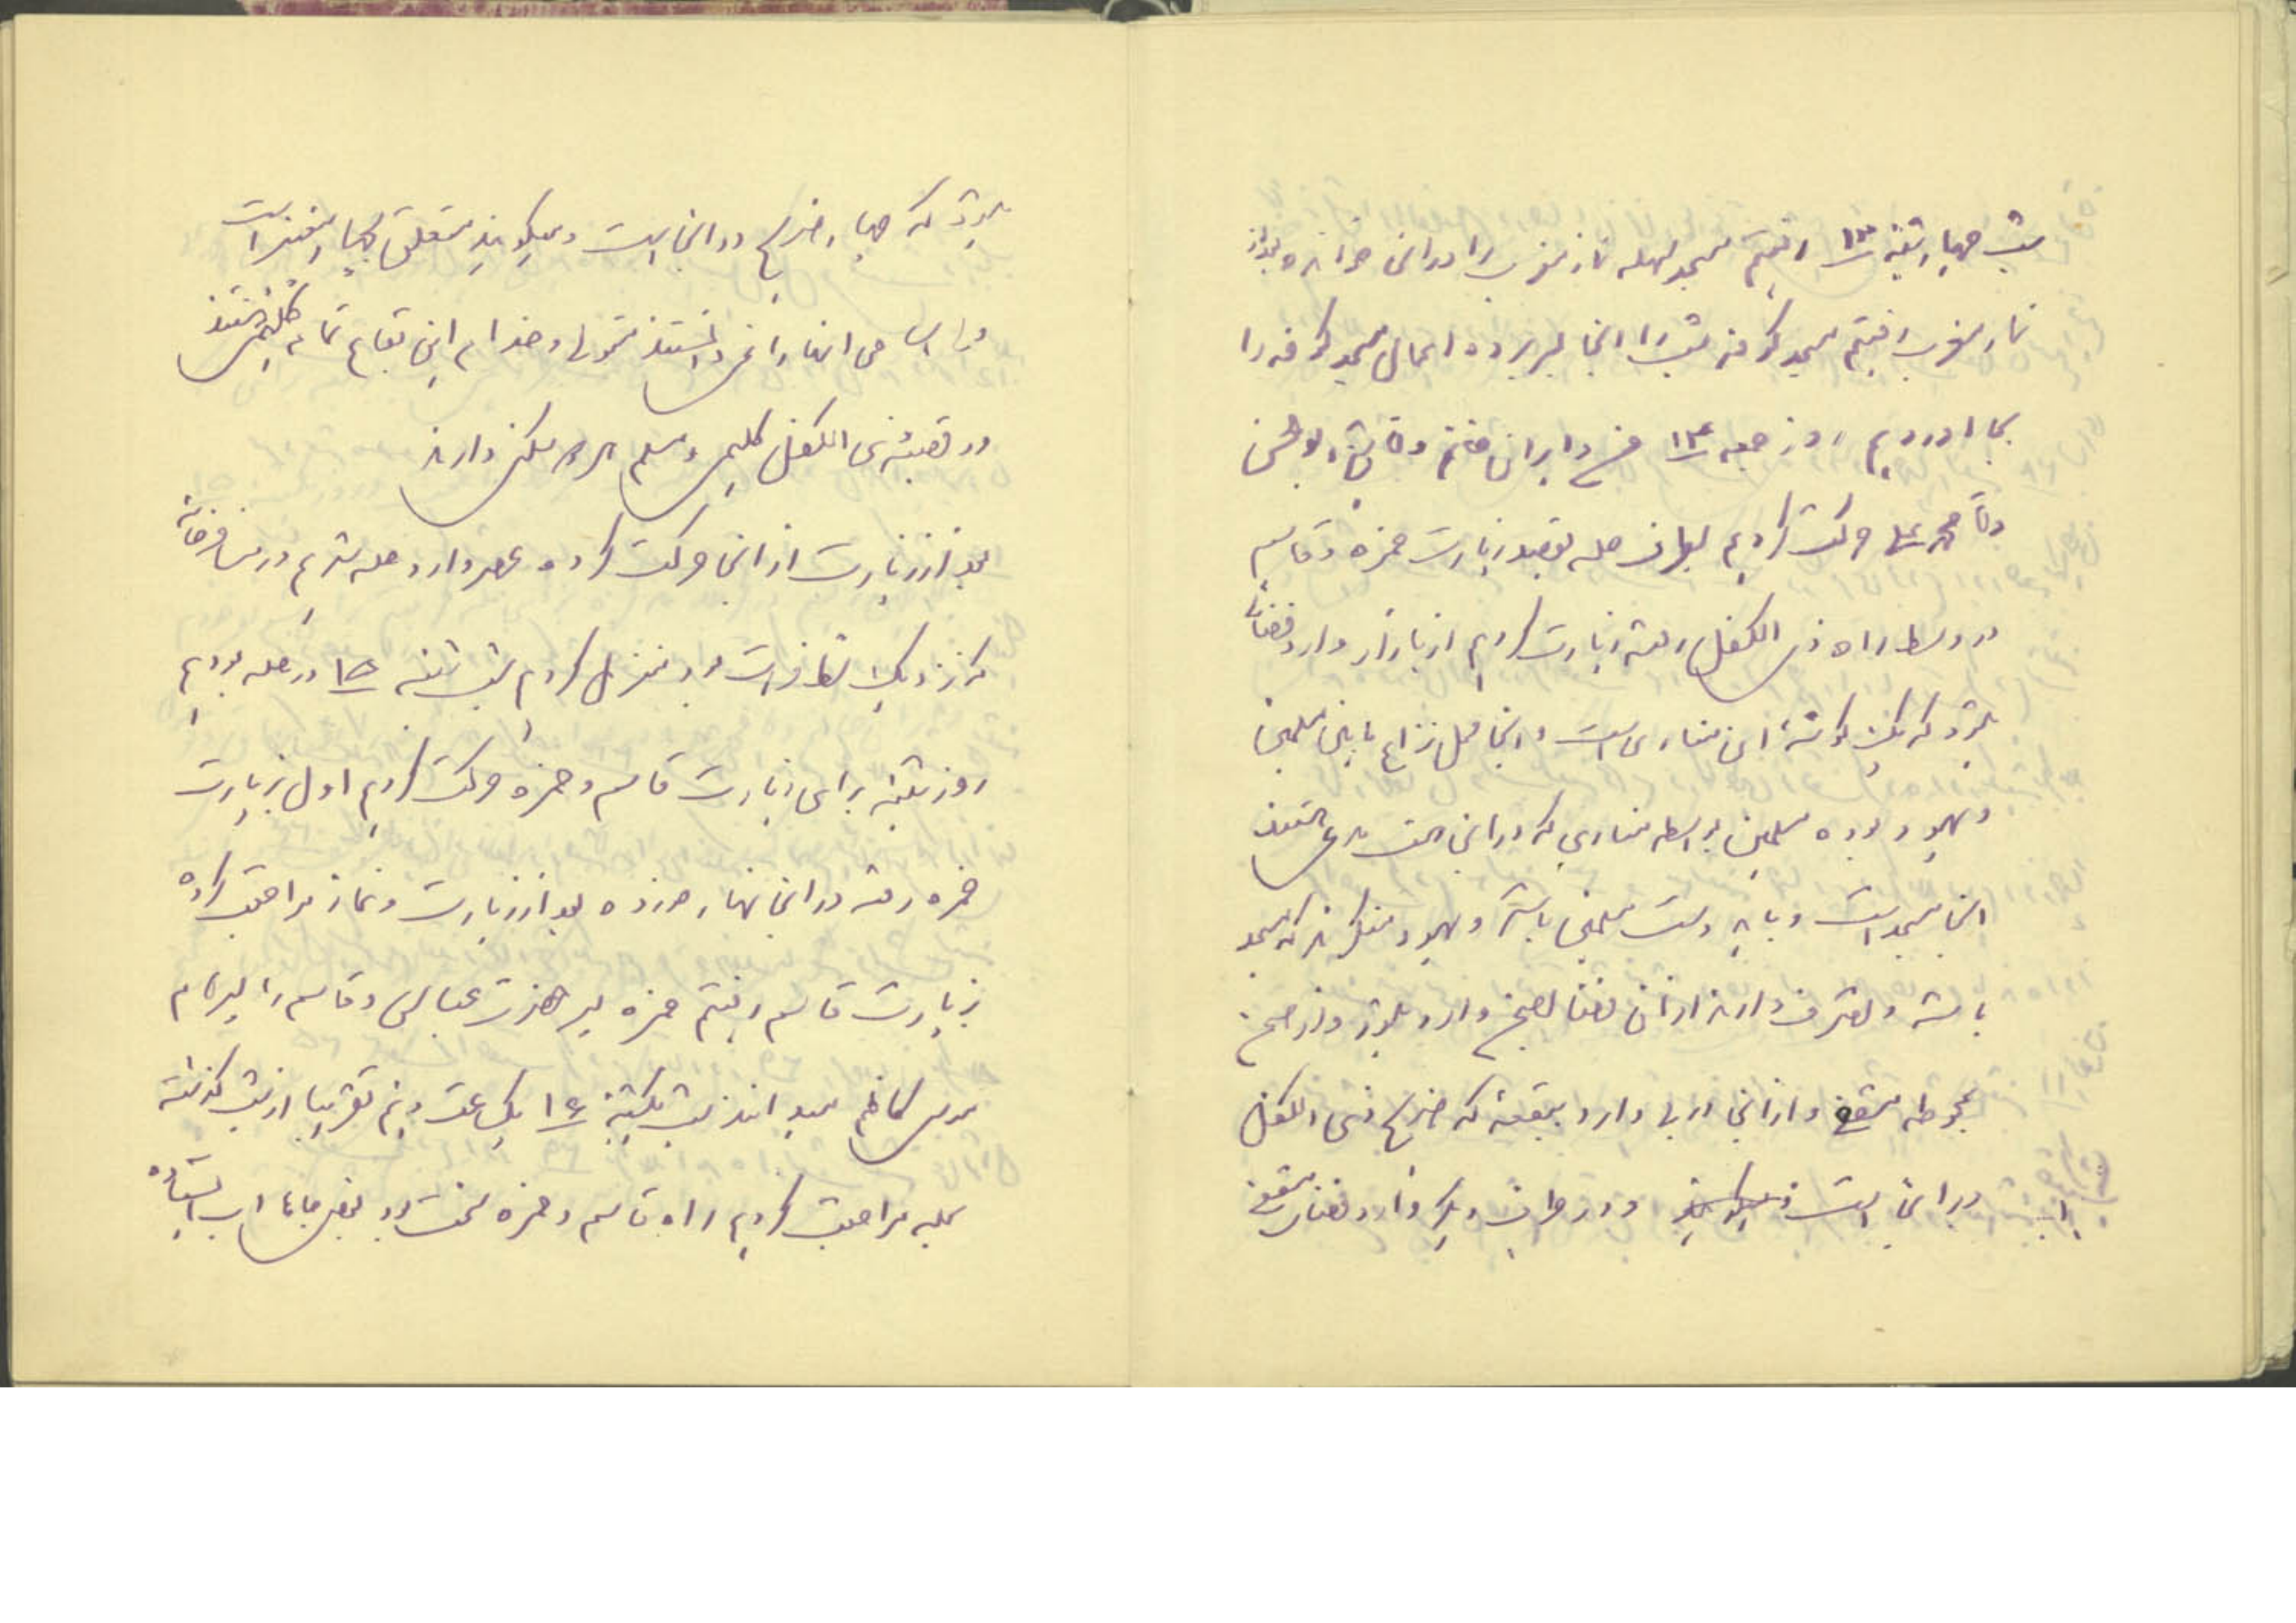 شب چهارشنبه ۱۳ رفتیم مسجد سهله نماز مغرب را در آنجا خوانده بعد از
نماز مغرب رفتیم مسجد کوفه شب را آنجا بسر برده اعمال مسجد کوفه را
بجا اوردیم روز جمعه ۱۴
حرکت کردیم بطرف حله بقصد زیارت حمزه و قاسم
در وسط راه ذی الکفل رفته زیارت کردیم از بازار وارد فضائی
میشود که یک گوشه ان مناری است و اینجا محل نزاع مابین مسلمین
و یهود بوده مسلمین بواسطه مناری که در انجا است مدعی هستند
اینجا مسجد است و باید دست مسلمین باشد و یهود منکرند که مسجد
باشد و تصرف دارند از آن فضا بصحن وارد میشود و از صحن
بمحوطه مسقفی و از آنجا دربی دارد ببقعه که ضریح ذی الکفل
در انجا است و در طرف دیگر دارد فضای مسقفی
میشود که چهار ضریح در انجا است و میگویند متعلق به چهار پیغمبر است
و اسامی انها را نمی دانستند متولی و خدام این بقاع تمام کلیمی هستند
در قصبه ذی الکفل کلیمی و مسلم هر دو سکنی دارند
بعد از زیارت از آنجا حرکت کرده عصر وارد حله شدیم در مسافرخانه
که نزدیک شط فرات بود منزل کردیم شب شنبه ۱۵ در حله بودیم
روز شنبه برای زیارت قاسم و حمزه حرکت کردیم اول زیارت
حمزه رفته در انجا نهار خورده بعد از زیارت و نماز مراجعت کرده
زیارت قاسم رفتیم حمزه پسر حضرت عباس و قاسم را پسر امام
موسی کاظم میدانند شب یکشنبه ۱۶ یک ساعت و نیم تقریبا از شب گذشته
بحله مراجعت کردیم راه قاسم و حمزه سخت بود بعضی جاها اب ایستاده